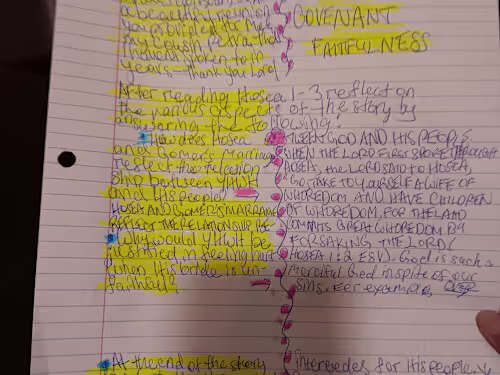 a beautiful reunion COVENANT
you burdened for me
and Cousin Petra that FAITHFULNESS
haven't spoken to in
years - thank you Lord!
After reading Hosea 1-3 reflect on
the various aspects of the story by
answering the following:
How does Hosea
and Gomer's marriage
reflect the relation-
ship between YHWH
and His people
HOSEA AND GOMER'S MARRIAGE
REFLECT THE RELATIONSHIP BE
TWEEN GOD AND HIS PEOPLE.
WHEN THE LORD FIRST SPOKE THROUGH
HOSEA, THE LORD SAID TO HOSEA,
"GO, TAKE TO YOURSELF A WIFE OF
WHOREDOM AND HAVE CHILDREN
OF WHOREDOM, FOR THE LAND
COMMITS GREAT WHOREDOM BY
FORSAKING THE LORD (
HOSEA 1:2 ESV). God is such a
merciful God in spite of our
sins. For example,
Why would YHWH be
justified in feeling hurt
when His bride is un-
faithful?
At the end of the story intercedes for His people.